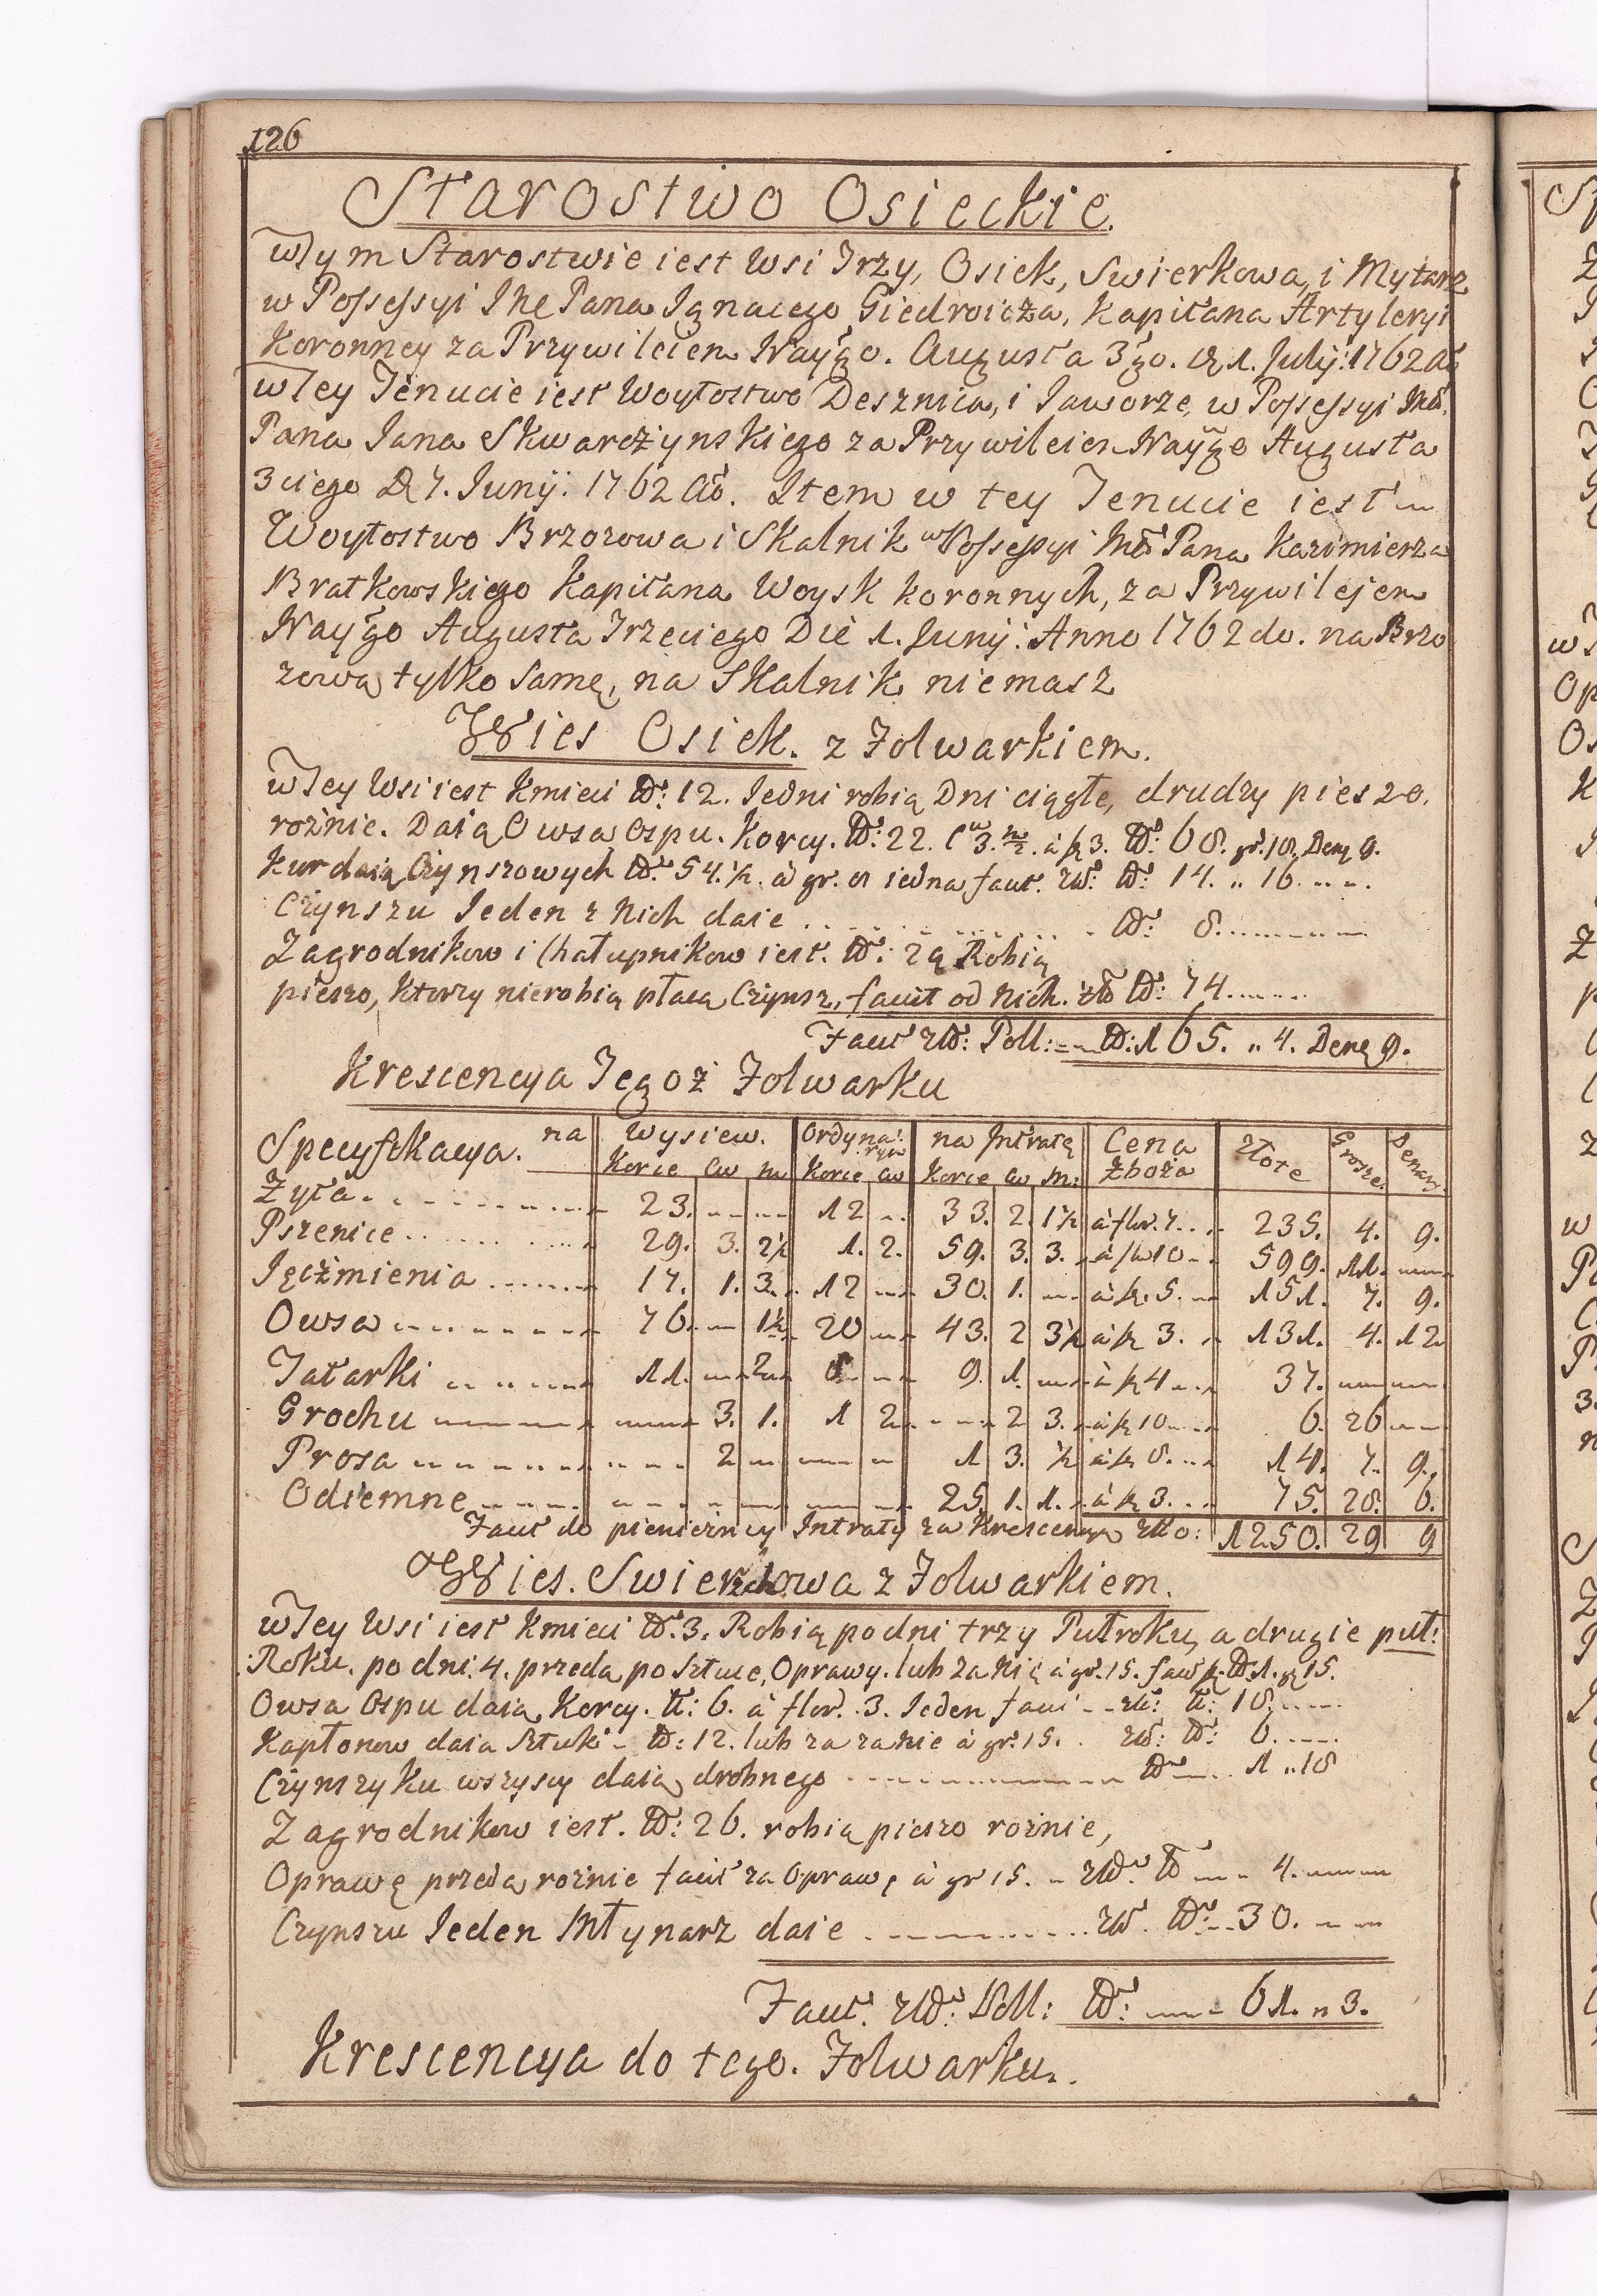 126
Starostwo Osieckie.
w Tym Starostwie iest Wsi Trzy, Osiek, Swierkowa, i Mytarz
w Possessyi Pana Ignacego Giedroicza, Kapitana Artyleryi
Koronney za Przywileiem Nayґo. Augusta 3go. 1. July: 1762
w Tey Tenucie iest Woytostwo Desznica, i Jaworze, w Possessyi
Pana Jana Skwarczynskiego za Przywileiem Augusta
3ciego D 7. Junij: 1762 Item w tey Tenucie iest
Woytostwo Brzozowa i Skalnik w Possessyi Pana Kazimierza
Bratkowskiego Kapitana Woysk koronnych, za Przywilejem
Augusta Trzeciego Die 1. Junij: Anno 1762do. na Brzo
zową tylko samę, na Skalnik niemasz
Wies Osiek. z Folwarkiem.
w Tey Wsi iest Kmieci 12. Jedni robią Dni ciągłe, drudzy pieszo.
rożnie. Daią Owsa Ospu. Korcy. 22. 3. 3. 68. gr. 18. Den 9.
Kur daią Czynszowych 54.½. à gr. 8 iedna facit. 14. „ 16.
Czynszu Jeden z Nich daie 8.
Zagrodnikow i Chałupnikow iest. Robią
pieszo, Ktorzy nierobią płacą Czynsz, facit od Nich. 74.
Facit Poll: 165. „ 4. Den 9.
Krescencya Tegoż Folwarku
Specyfikacya. na Wysiew. Ordynaryą na Intratę Cena Zboża Złote Grosze. Denary.
Korce Ćw m Korce ćw Korce ćw m:
Żyta 23. 12 33. 2. 1½ à flor. 7. 235. 4. 9.
Pszenice 29. 3. 2½ 1. 2. 59. 3. 3. à 10 599. 11.
Jęczmienia 17. 1. 3. 12 30. 1. à 5. 151. 7. 9.
Owsa 76. 1½ 20 43. 2 3½ à 3. 131. 4. 12
Tatarki 11. 2 8 9. 1. à 4 37.
Grochu 3. 1. 1 2 2 3. à 10 6. 26
Prosa 2 1 3. ½ à 8. 14. 7. 9.
Odiemne 25. 1. 1. à 3. 75. 28. 6.
Facit do pienieżney Intraty za Krescencyą 1250. 29 9
Wies. Swierzchowa z Folwarkiem.
w Tey Wsi iest Kmieci 3. Robią podni trzy Pułroku, a drugie puł:
Roku. po dni. 4. przeda po Sztuce, Oprawy. lub za Nię à gr. 15. 1. 15.
Owsa Ospu daią Korcy. 6. à flor. 3. Jeden faci 18.
Kapłonow daią Sztuk 12. lub za zanie à gr. 15. 6.
Czynszyku wszyscy daią drobnego 1 „ 18
Zagrodnikow iest. 26. robią pieszo rożnie,
Oprawę przedą rożnie facit za Oprawę à gr 15. 4.
Czynszu Jeden Młynarz daie 30.
Facit. Poll: 61. „ 3.
Krescencya do tego. Folwarku.